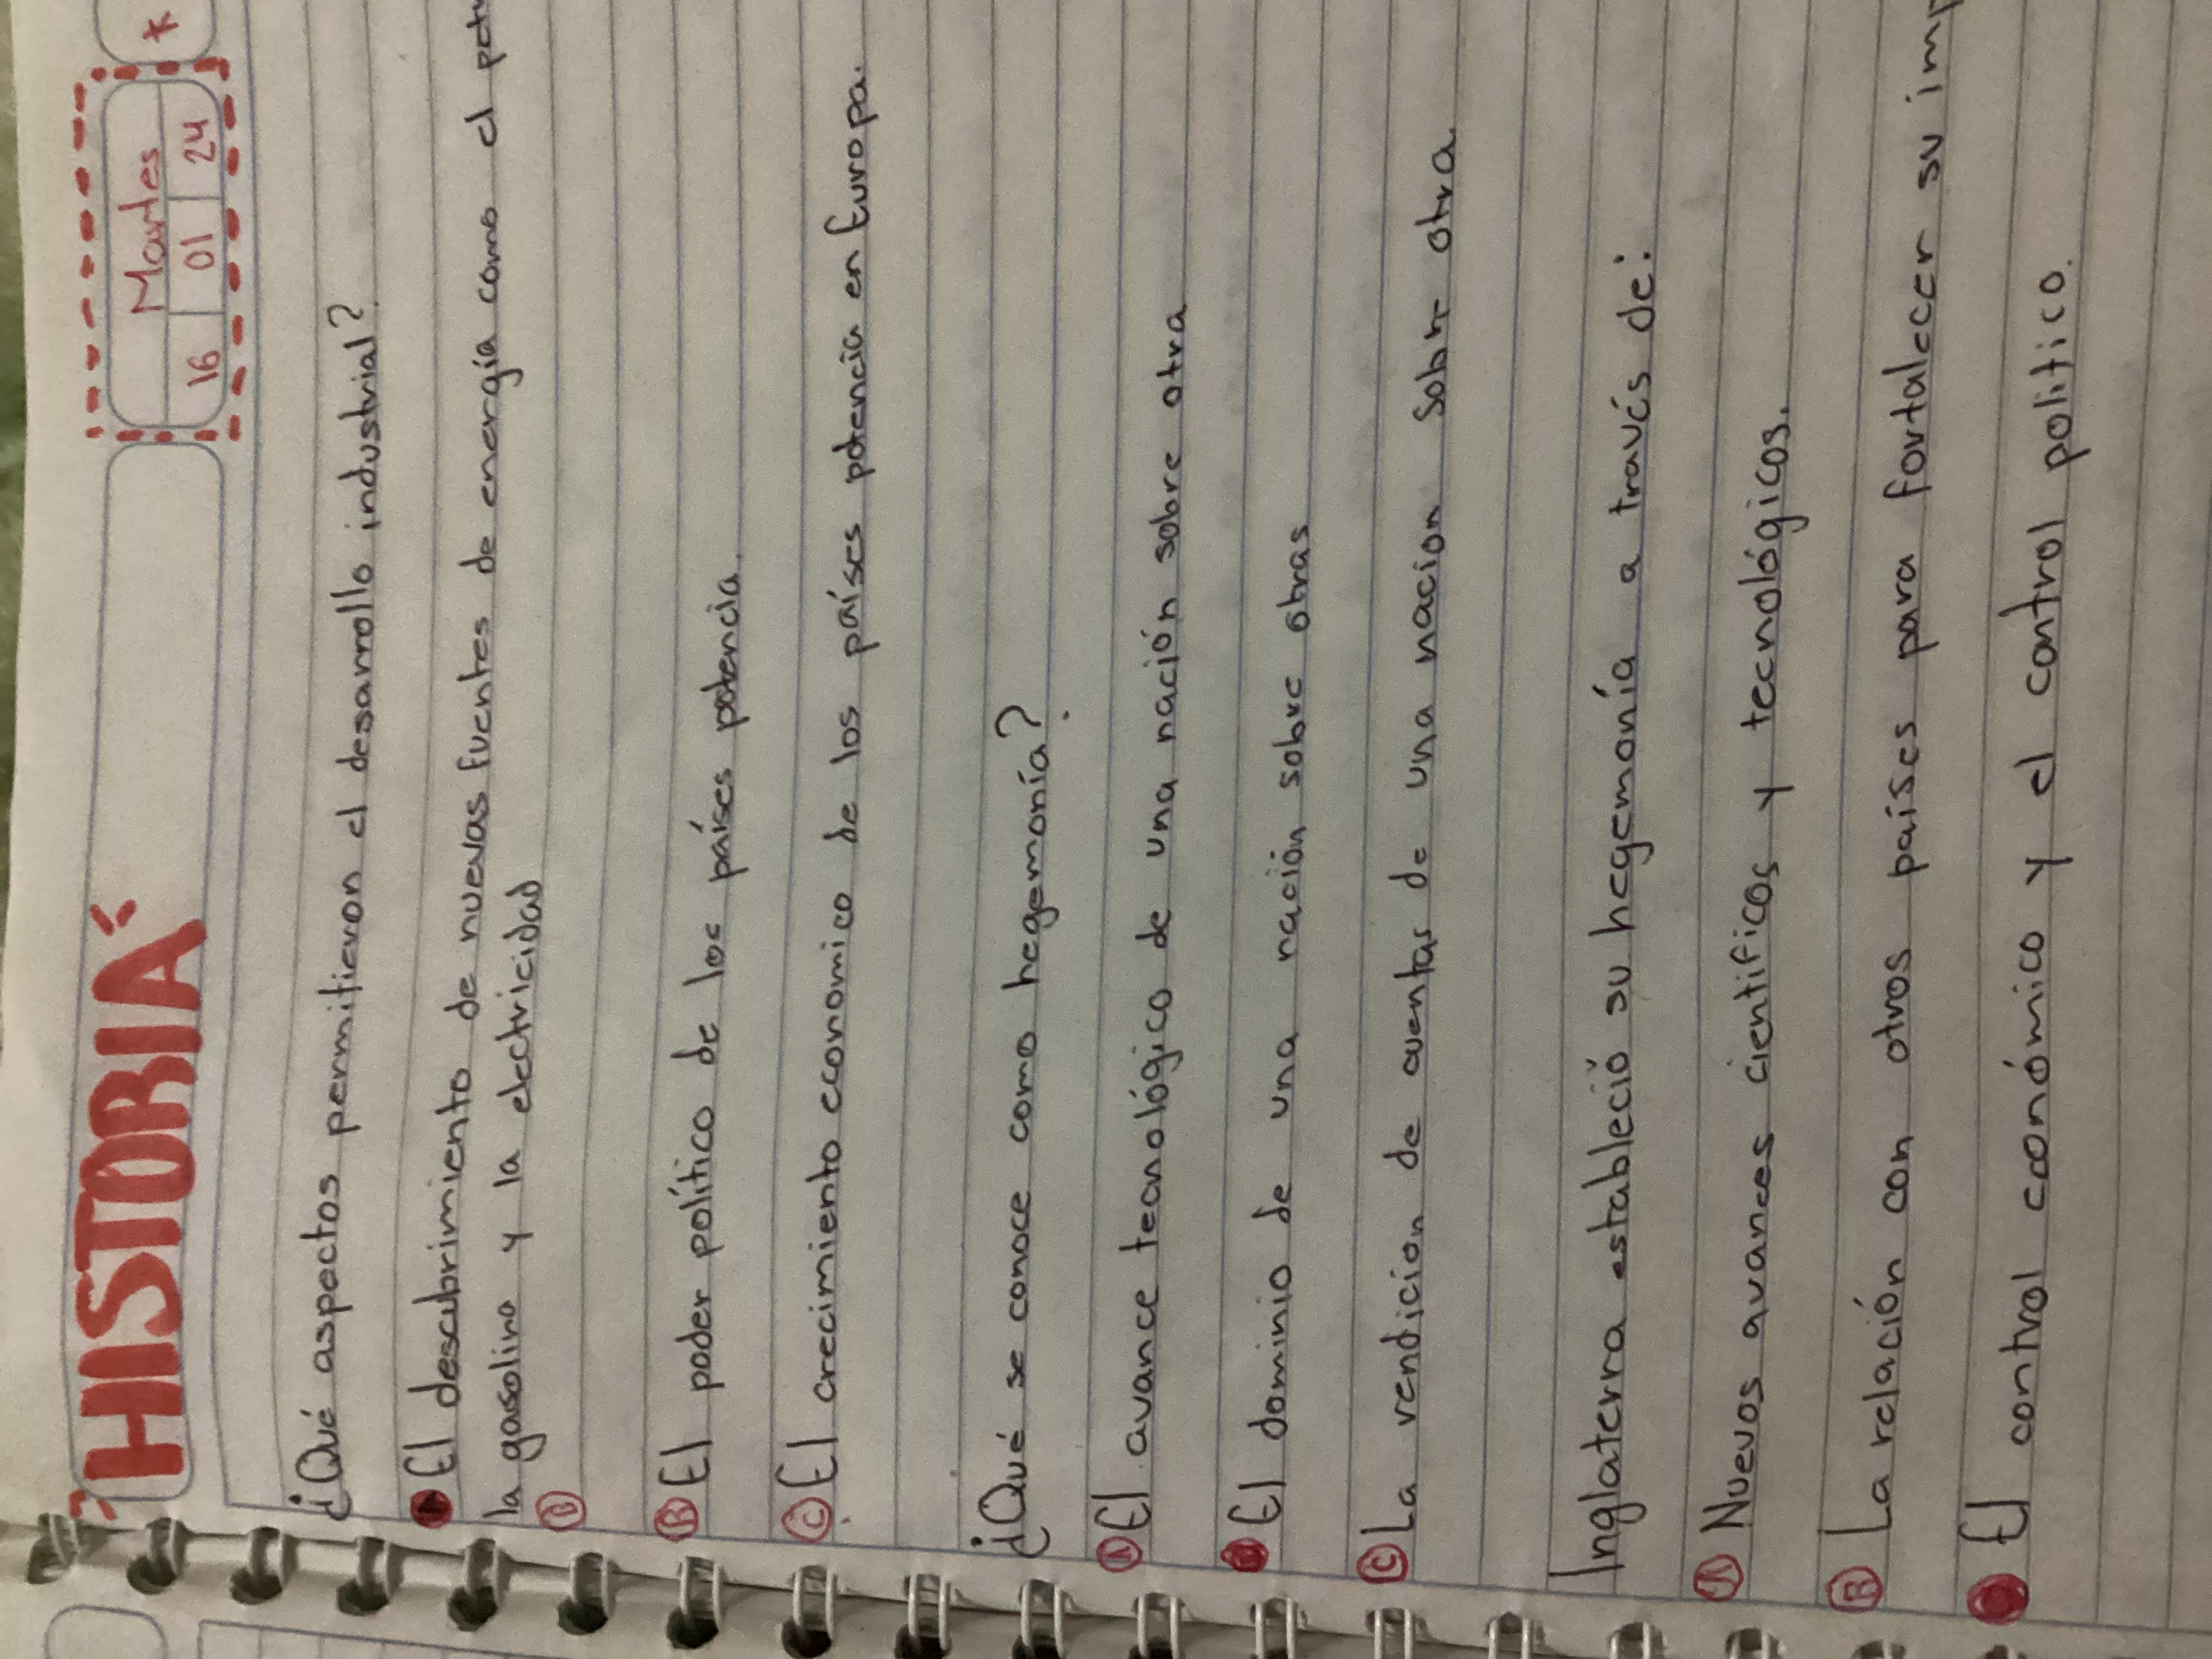 HISTORIA
Martes
16 01 24
¿Qué aspectos permitieron el desarrollo industrial?
A El descubrimiento de nuevas fuentes de energía como el
la gasolina y la electricidad
B
B El poder político de los países potencia.
C El crecimiento economico de los países potencia en Europa.
¿Qué se conoce como hegemonía?
A El avance tecnológico de una nación sobre otra
El dominio de una nación sobre otras
C La rendicion de cuentas de una nacion sobre otra.
Inglaterra estableció su hegemonía a través de:
A Nuevos avances cientificos y tecnológicos.
B La relación con otros países para fortalecer su
El control económico y el control politico.